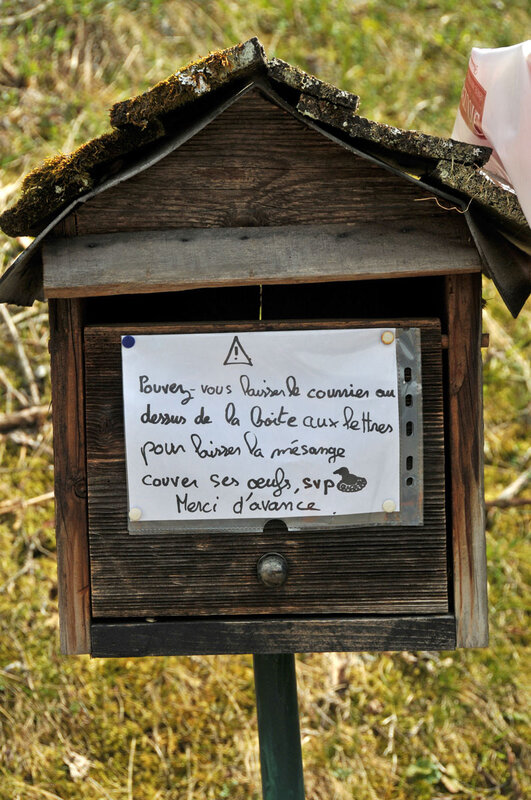 Pouvez-vous laisser le courrier au
dessus de la boite aux lettres
pour laisser la mésange
couver ses œufs, svp
Merci d'avance.